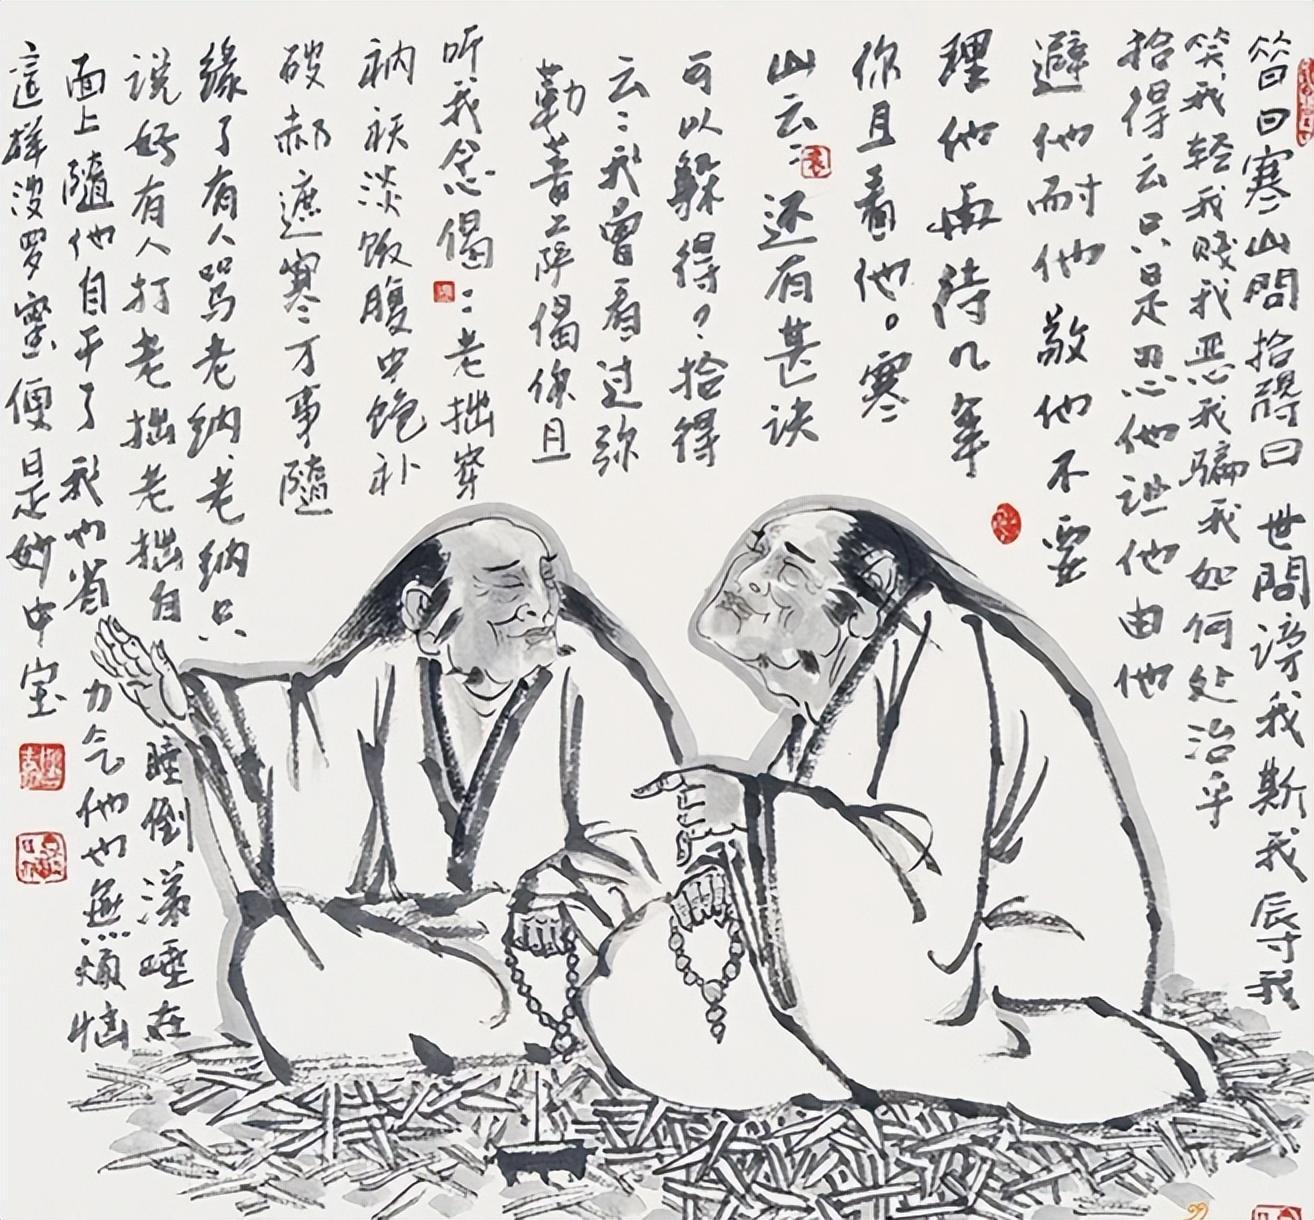 昔日寒山問拾得曰 世間謗我斯我辱我
笑我轻我贱我恶我骗我如何处治乎
拾得云只是忍他让他由他
避他耐他敬他不要
理他再待几年
你且看他。寒
山云：还有甚诀
可以躲得？拾得
云：我曾看过弥
勒菩萨偈你且
听我念偈：老拙穿
衲袄淡饭腹中饱补
破郝遮寒万事随
缘了有人骂老纳、老纳只
说好有人打老拙老拙自睡倒涕唾在
面上隨他自干了我也省力气他也無烦恼
這样波罗蜜便是妙中宝